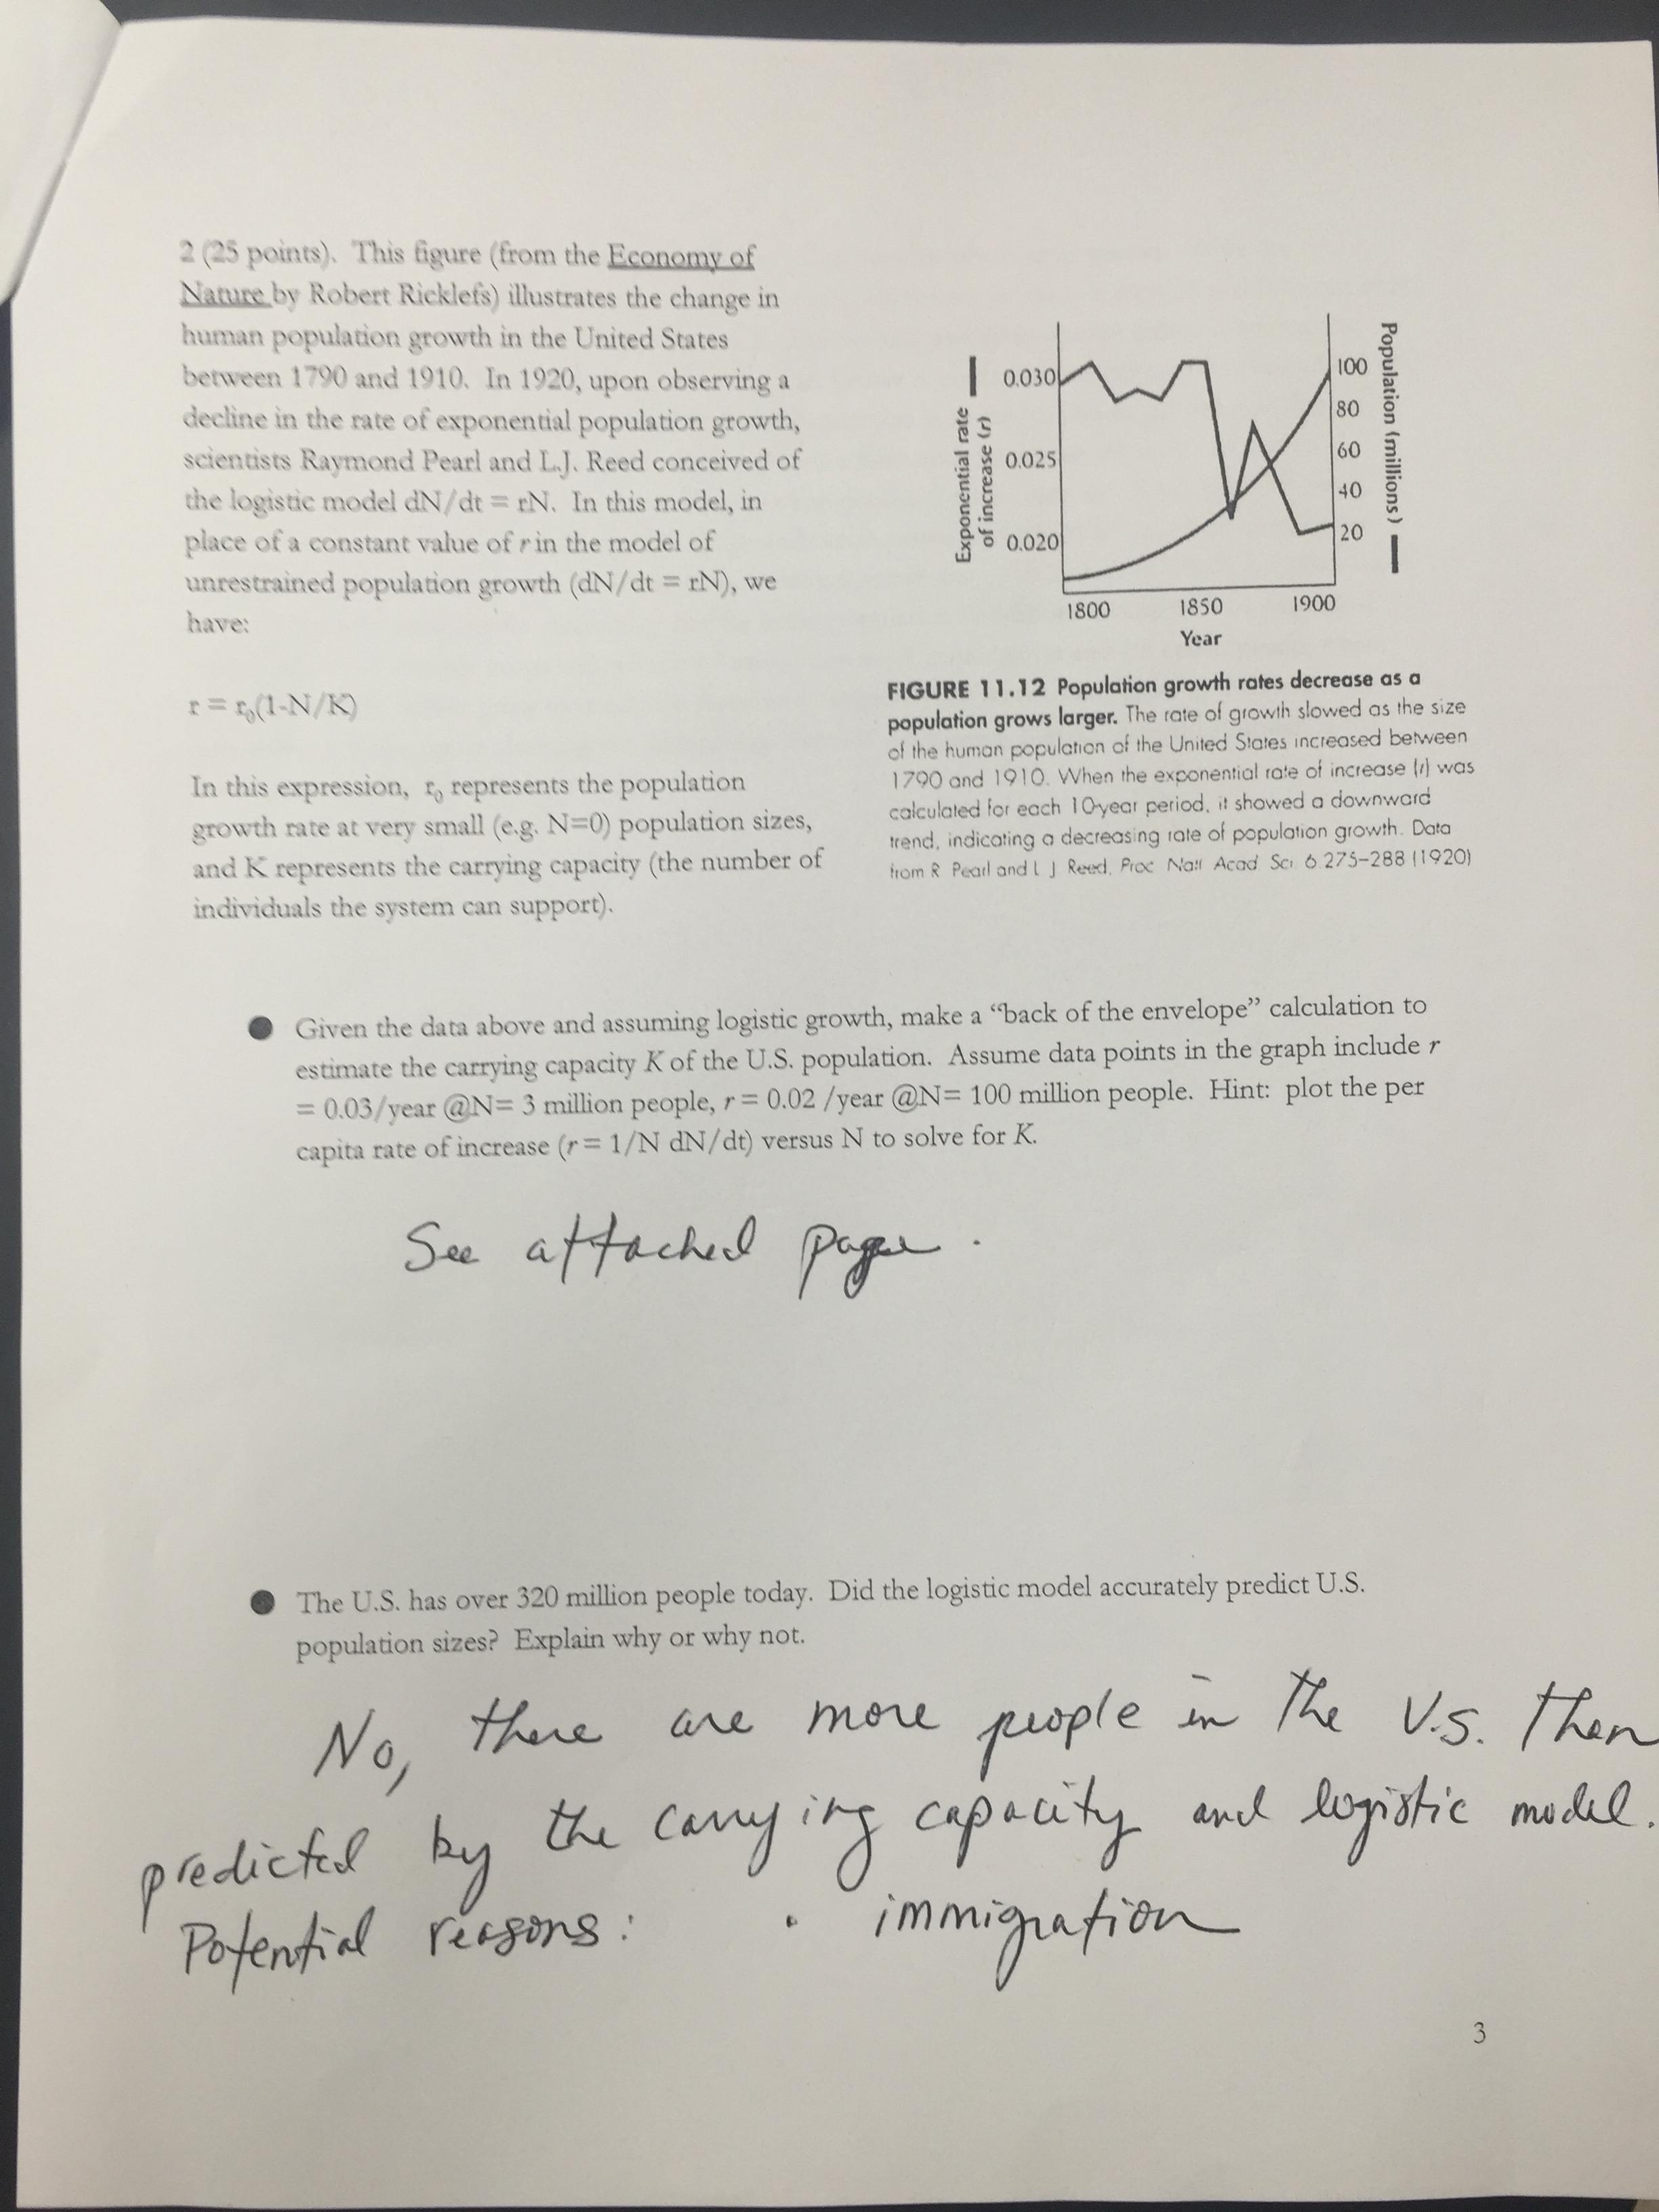 2 (25 points). This figure (from the Economy of
Nature by Robert Ricklefs) illustrates the change in
human population growth in the United States
between 1790 and 1910. In 1920, upon observing a
decline in the rate of exponential population growth,
scientists Raymond Pearl and L.J. Reed conceived of
the logistic model dN/dt = rN. In this model, in
place of a constant value of r in the model of
unrestrained population growth (dN/dt = rN), we
have:
r = r₀(1-N/K)
In this expression, r₀ represents the population
growth rate at very small (e.g. N=0) population sizes,
and K represents the carrying capacity (the number of
individuals the system can support).
Exponential rate
of increase (r)
0.030
0.025
0.020
100
80
60
40
20
Population (millions)
1800 1850 1900
Year
FIGURE 11.12 Population growth rates decrease as a
population grows larger. The rate of growth slowed as the size
of the human population of the United States increased between
1790 and 1910. When the exponential rate of increase (r) was
calculated for each 10-year period, it showed a downward
trend, indicating a decreasing rate of population growth. Data
from R Pearl and L J Reed, Proc Natl Acad Sci 6 275–288 (1920)
● Given the data above and assuming logistic growth, make a “back of the envelope” calculation to
estimate the carrying capacity K of the U.S. population. Assume data points in the graph include r
= 0.03/year @N= 3 million people, r = 0.02 /year @N= 100 million people. Hint: plot the per
capita rate of increase (r = 1/N dN/dt) versus N to solve for K.
See attached page.
● The U.S. has over 320 million people today. Did the logistic model accurately predict U.S.
population sizes? Explain why or why not.
No, there are more people in the U.S. then
predicted by the carrying capacity and logistic model.
Potential reasons: • immigration
3